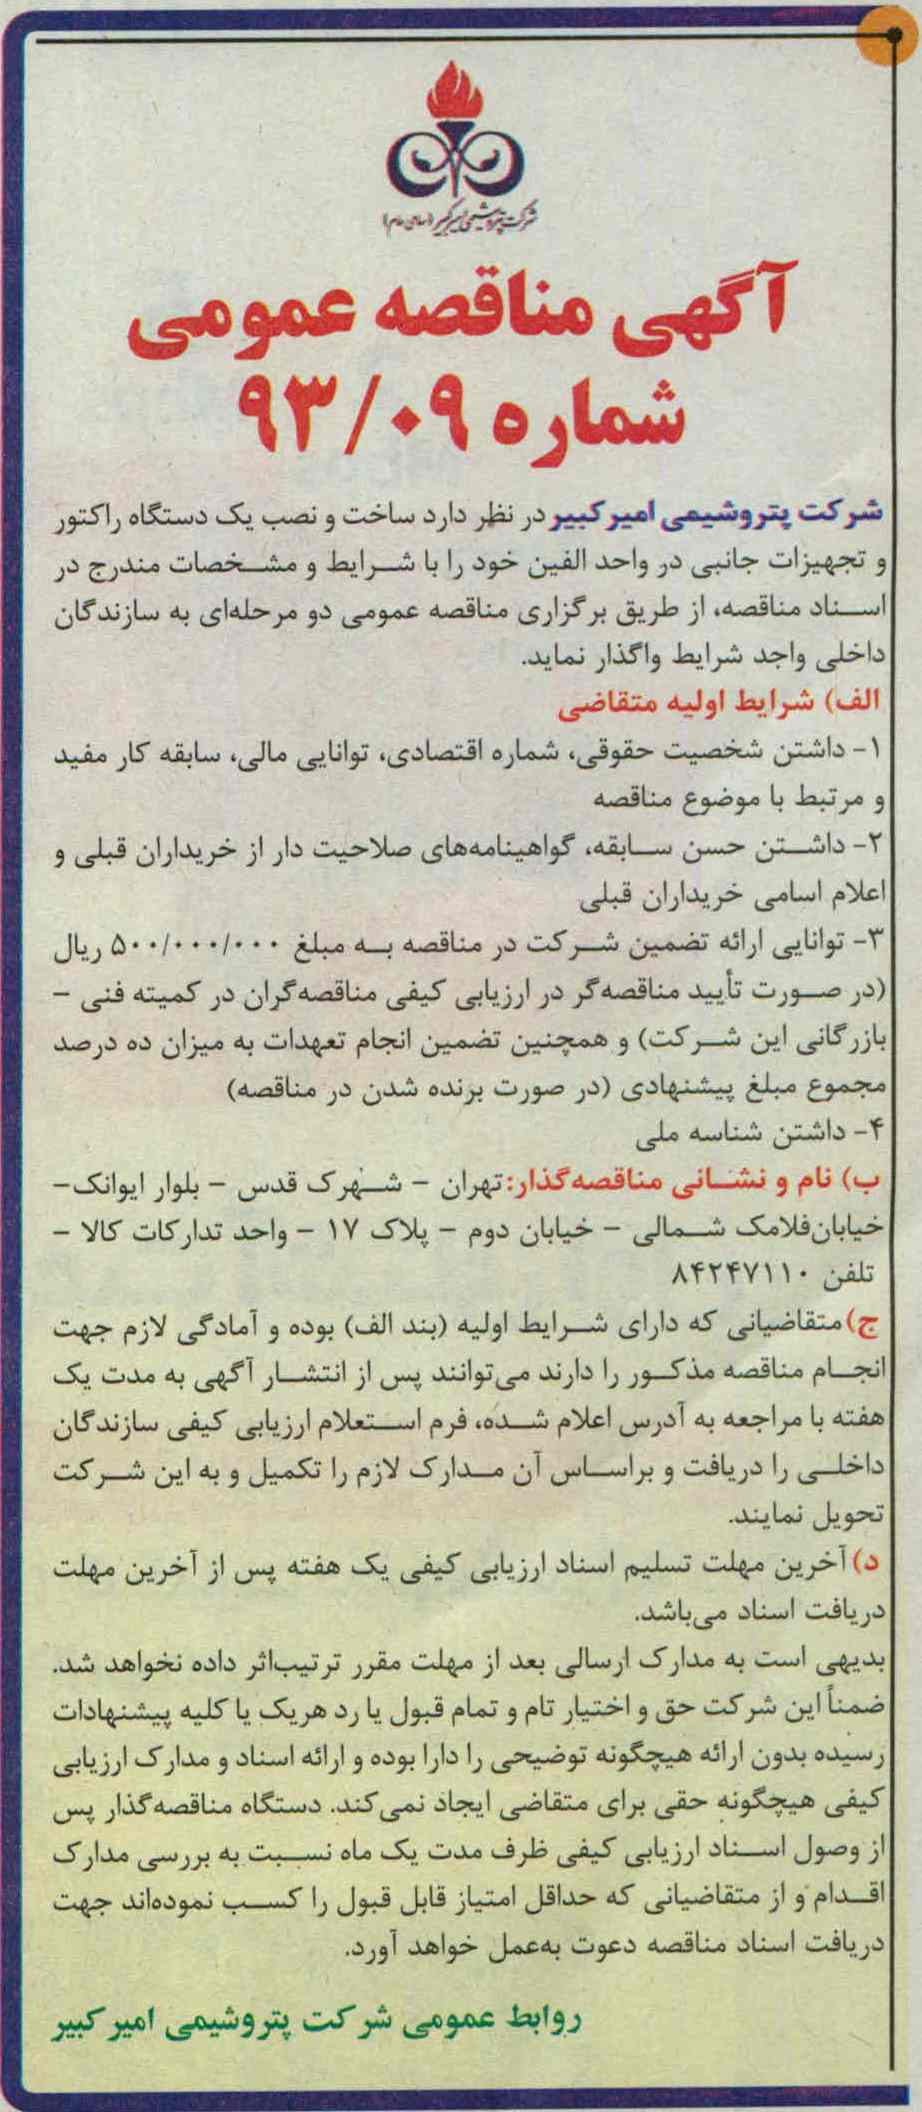 شرکت پتروشیمی امیرکبیر (سهامی عام)
آگهی مناقصه عمومی
شماره ۹۳/۰۹
شرکت پتروشیمی امیرکبیر در نظر دارد ساخت و نصب یک دستگاه راکتور
و تجهیزات جانبی در واحد الفین خود را با شرایط و مشخصات مندرج در
اسناد مناقصه، از طریق برگزاری مناقصه عمومی دو مرحله‌ای به سازندگان
داخلی واجد شرایط واگذار نماید.
الف) شرایط اولیه متقاضی
۱- داشتن شخصیت حقوقی، شماره اقتصادی، توانایی مالی، سابقه کار مفید
و مرتبط با موضوع مناقصه
۲- داشتن حسن سابقه، گواهینامه‌های صلاحیت دار از خریداران قبلی و
اعلام اسامی خریداران قبلی
۳- توانایی ارائه تضمین شرکت در مناقصه به مبلغ ۵۰۰/۰۰۰/۰۰۰ ریال
(در صورت تأیید مناقصه‌گر در ارزیابی کیفی مناقصه‌گران در کمیته فنی -
بازرگانی این شرکت) و همچنین تضمین انجام تعهدات به میزان ده درصد
مجموع مبلغ پیشنهادی (در صورت برنده شدن در مناقصه)
۴- داشتن شناسه ملی
ب) نام و نشانی مناقصه‌گذار: تهران - شهرک قدس - بلوار ایوانک-
خیابان فلامک شمالی - خیابان دوم - پلاک ۱۷ - واحد تدارکات کالا -
تلفن ۸۴۲۴۷۱۱۰
ج) متقاضیانی که دارای شرایط اولیه (بند الف) بوده و آمادگی لازم جهت
انجام مناقصه مذکور را دارند می‌توانند پس از انتشار آگهی به مدت یک
هفته با مراجعه به آدرس اعلام شده، فرم استعلام ارزیابی کیفی سازندگان
داخلی را دریافت و براساس آن مدارک لازم را تکمیل و به این شرکت
تحویل نمایند.
د) آخرین مهلت تسلیم اسناد ارزیابی کیفی یک هفته پس از آخرین مهلت
دریافت اسناد می‌باشد.
بدیهی است به مدارک ارسالی بعد از مهلت مقرر ترتیب‌اثر داده نخواهد شد.
ضمناً این شرکت حق و اختیار تام و تمام قبول یا رد هریک یا کلیه پیشنهادات
رسیده بدون ارائه هیچگونه توضیحی را دارا بوده و ارائه اسناد و مدارک ارزیابی
کیفی هیچگونه حقی برای متقاضی ایجاد نمی‌کند. دستگاه مناقصه‌گذار پس
از وصول اسناد ارزیابی کیفی ظرف مدت یک ماه نسبت به بررسی مدارک
اقدام و از متقاضیانی که حداقل امتیاز قابل قبول را کسب نموده‌اند جهت
دریافت اسناد مناقصه دعوت به‌عمل خواهد آورد.
روابط عمومی شرکت پتروشیمی امیرکبیر